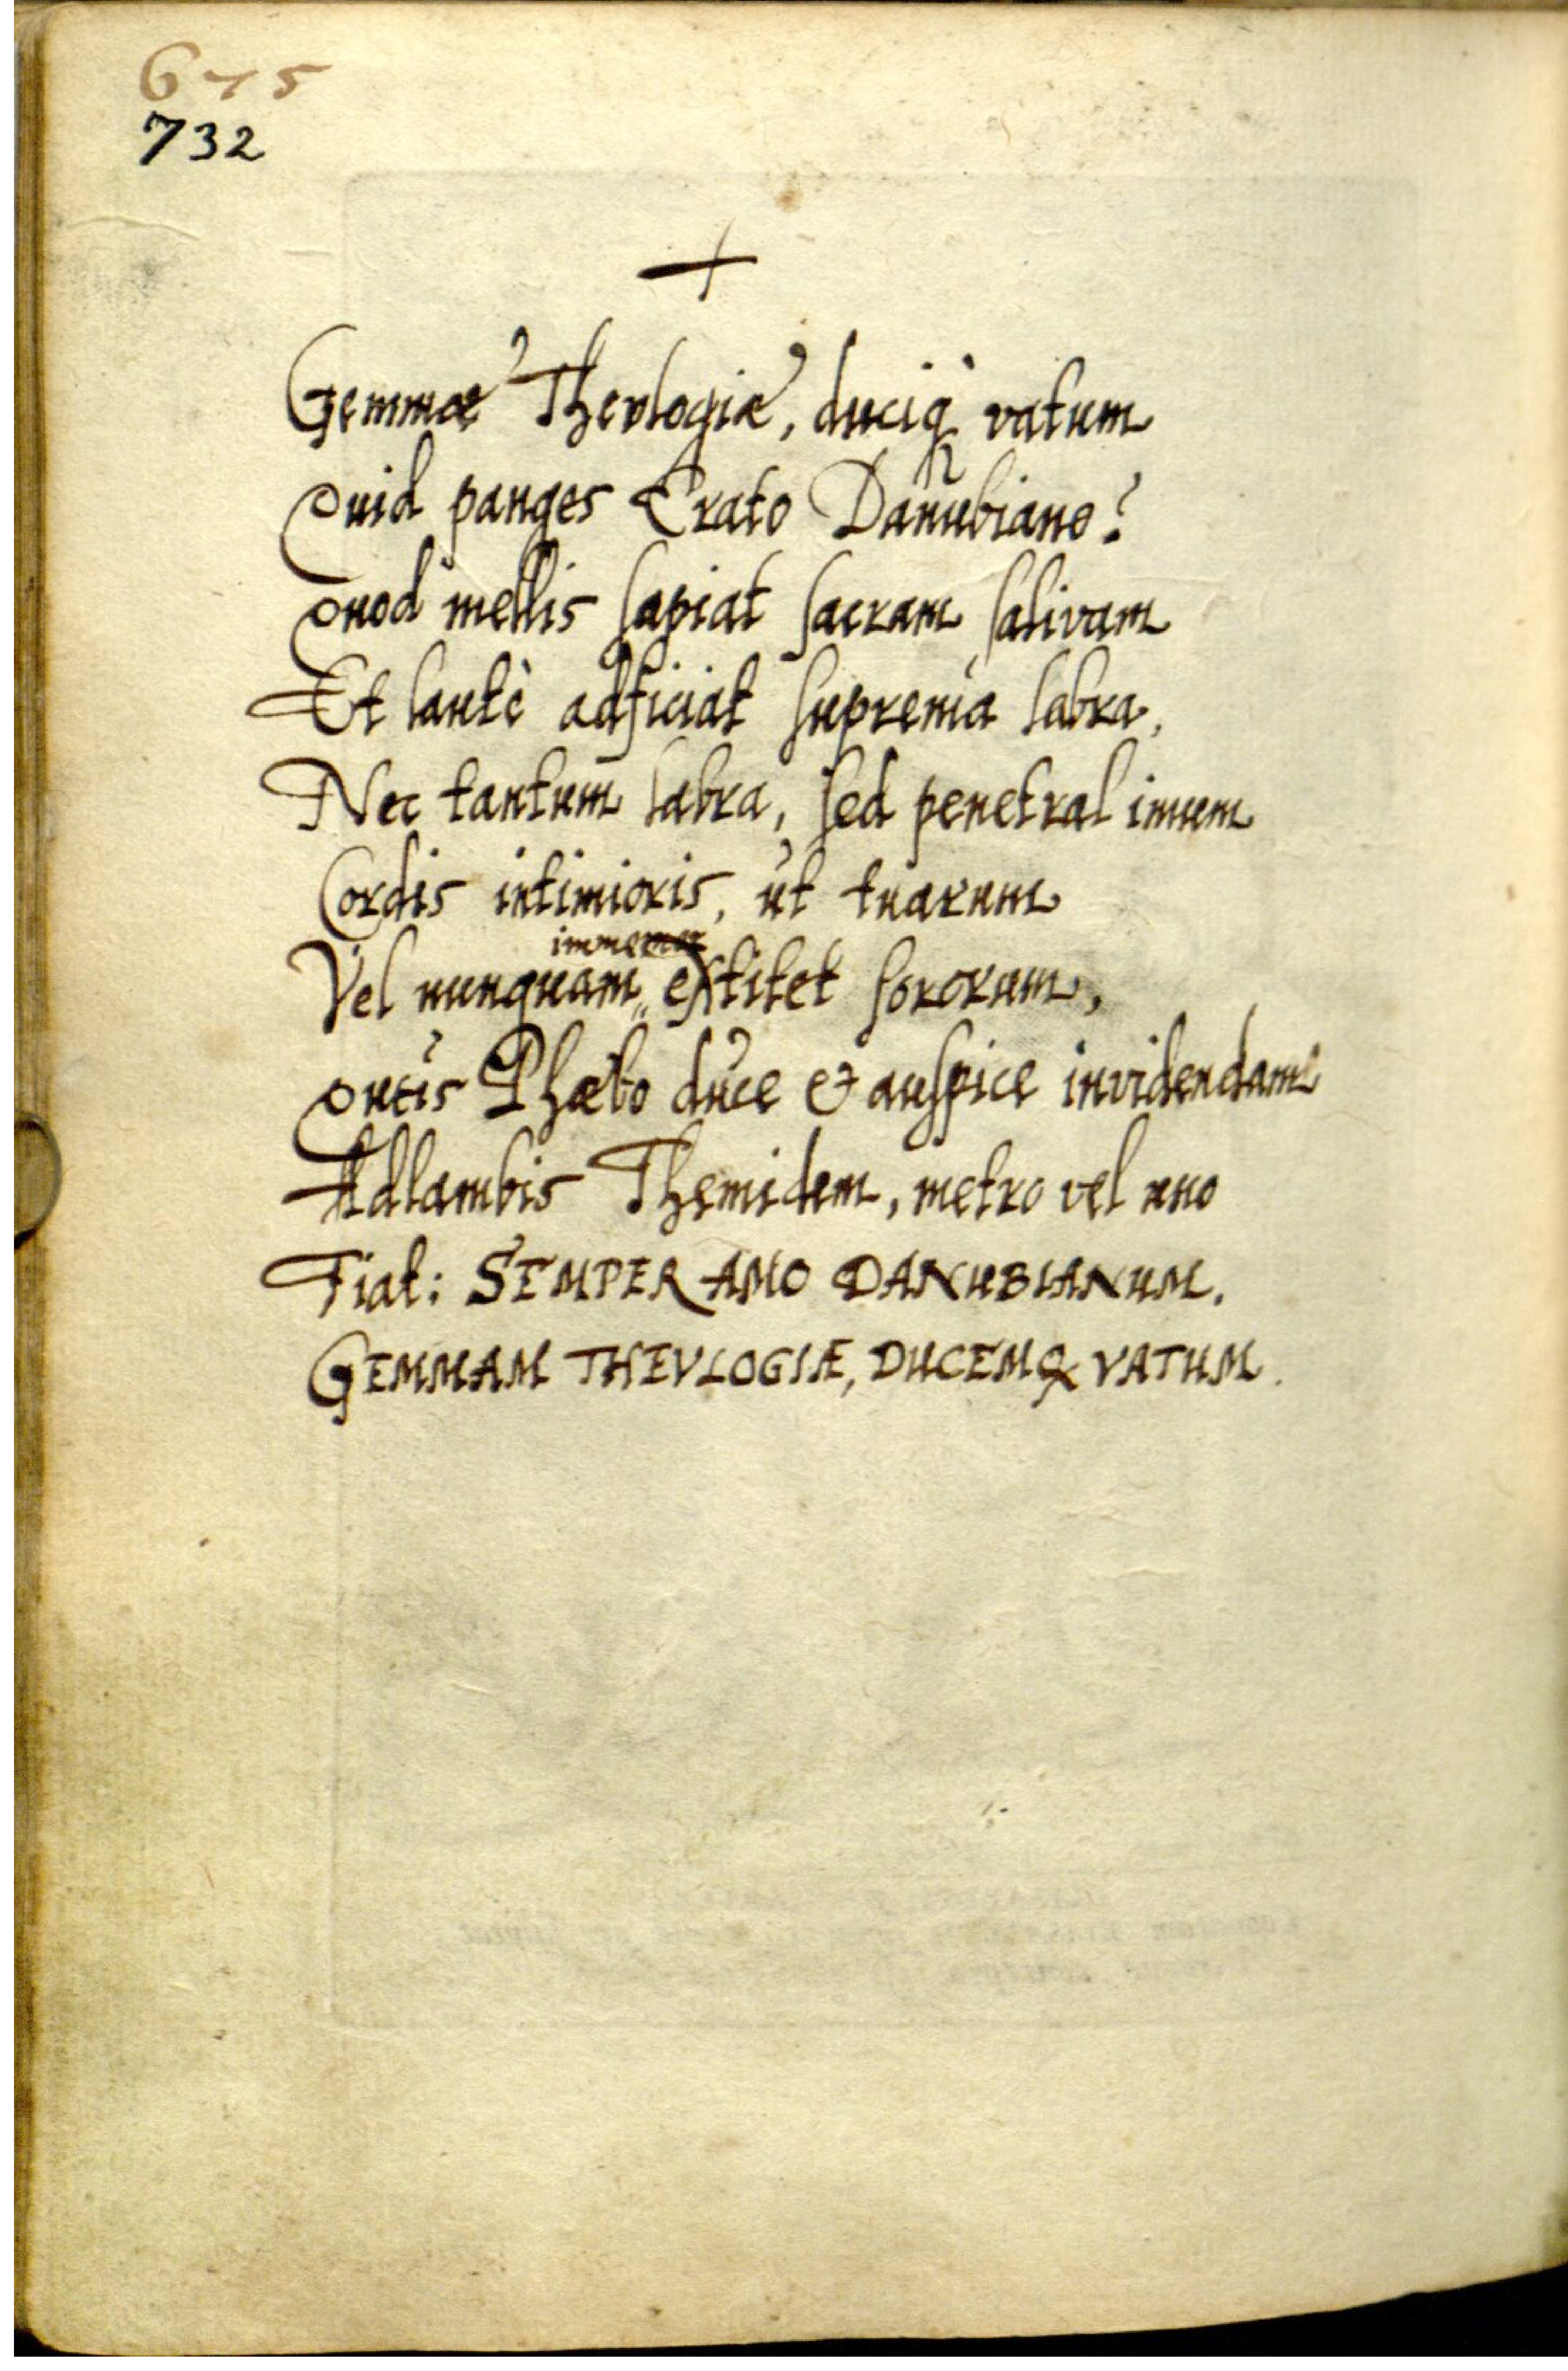 675
732
+
Gemmæ Thevlogiæ, duciq̀ vatum
Quid panges Erato Danubiano?
Quod mellis sapiat sacram salivam
Et lautè adficiat suprema labra,
Nec tantum labra, sed penetral imum
Cordis intimioris, ut tuarum
immemor
Vel nunquam extitet sororum,
Queis Phœbo duce & auspice invidendam
Adlambis Themidem, metro vel uno
Fiat: SEMPER AMO DANUBIANUM.
GEMMAM THEVLOGIÆ, DUCEMQ VATUM.